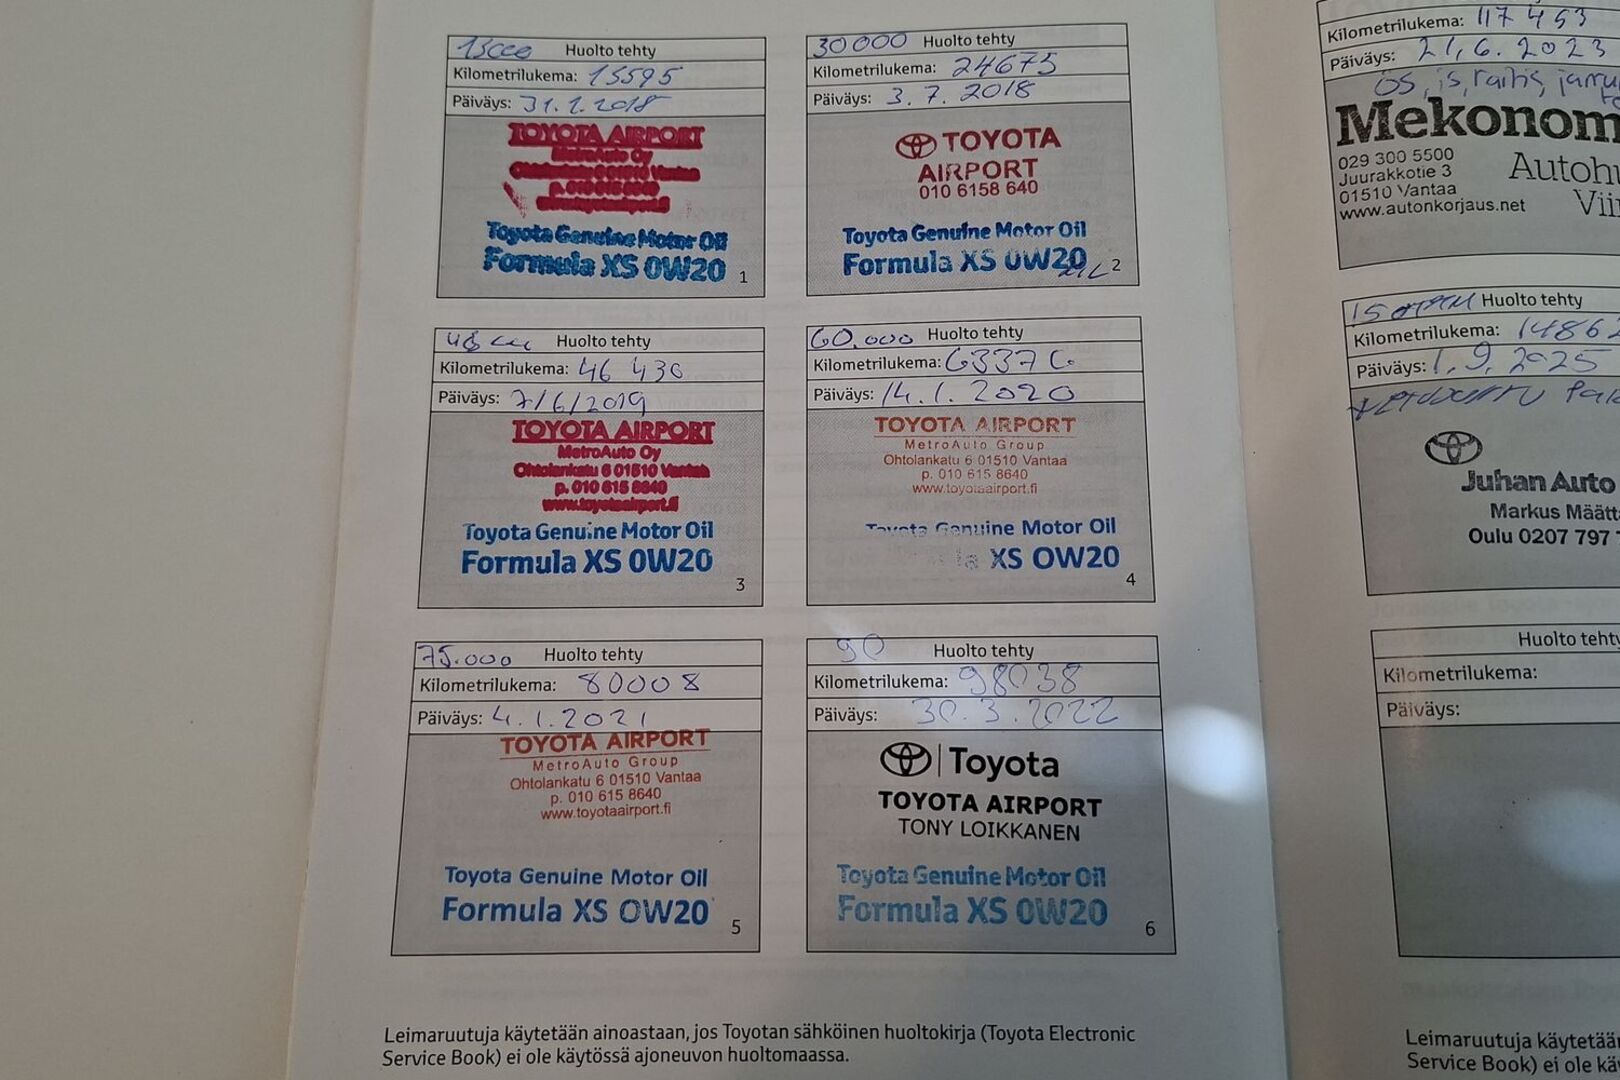 15000 Huolto tehty
Kilometrilukema: 15595
Päiväys: 31.1.2018
TOYOTA AIRPORT
MetroAuto Oy
Ohtolankatu 6 01510 Vantaa
p. 010 615 8640
Toyota Genuine Motor Oil
Formula XS 0W20
1
30000 Huolto tehty
Kilometrilukema: 24675
Päiväys: 3.7.2018
TOYOTA
AIRPORT
010 6158 640
Toyota Genuine Motor Oil
Formula XS 0W20
2
Huolto tehty
Kilometrilukema: 46 430
Päiväys: 7/6/2019
TOYOTA AIRPORT
MetroAuto Oy
Ohtolankatu 6 01510 Vantaa
p. 010 615 8640
www.toyotaairport.fi
Toyota Genuine Motor Oil
Formula XS 0W20
3
60.000 Huolto tehty
Kilometrilukema: 63376
Päiväys: 14.1.2020
TOYOTA AIRPORT
MetroAuto Group
Ohtolankatu 6 01510 Vantaa
p. 010 615 8640
www.toyotaairport.fi
Toyota Genuine Motor Oil
XS 0W20
4
75.000 Huolto tehty
Kilometrilukema: 80008
Päiväys: 4.1.2021
TOYOTA AIRPORT
MetroAuto Group
Ohtolankatu 6 01510 Vantaa
p. 010 615 8640
www.toyotaairport.fi
Toyota Genuine Motor Oil
Formula XS 0W20
5
90 Huolto tehty
Kilometrilukema: 98038
Päiväys: 30.3.2022
Toyota
TOYOTA AIRPORT
TONY LOIKKANEN
Toyota Genuine Motor Oil
Formula XS 0W20
6
Leimaruutuja käytetään ainoastaan, jos Toyotan sähköinen huoltokirja (Toyota Electronic
Service Book) ei ole käytössä ajoneuvon huoltomaassa.
Kilometrilukema: 117 453
Päiväys: 21.6.2023
ös, is, raitis, jarru
Mekonom
029 300 5500
Juurakkotie 3
01510 Vantaa
www.autonkorjaus.net
Autohu
Vii
Huolto tehty
Kilometrilukema: 14862
Päiväys: 1.9.2025
Juhan Auto
Markus Määtt
Oulu 0207 797
Huolto tehty
Kilometrilukema:
Päiväys:
Leimaruutuja käytetää
Service Book) ei ole kä